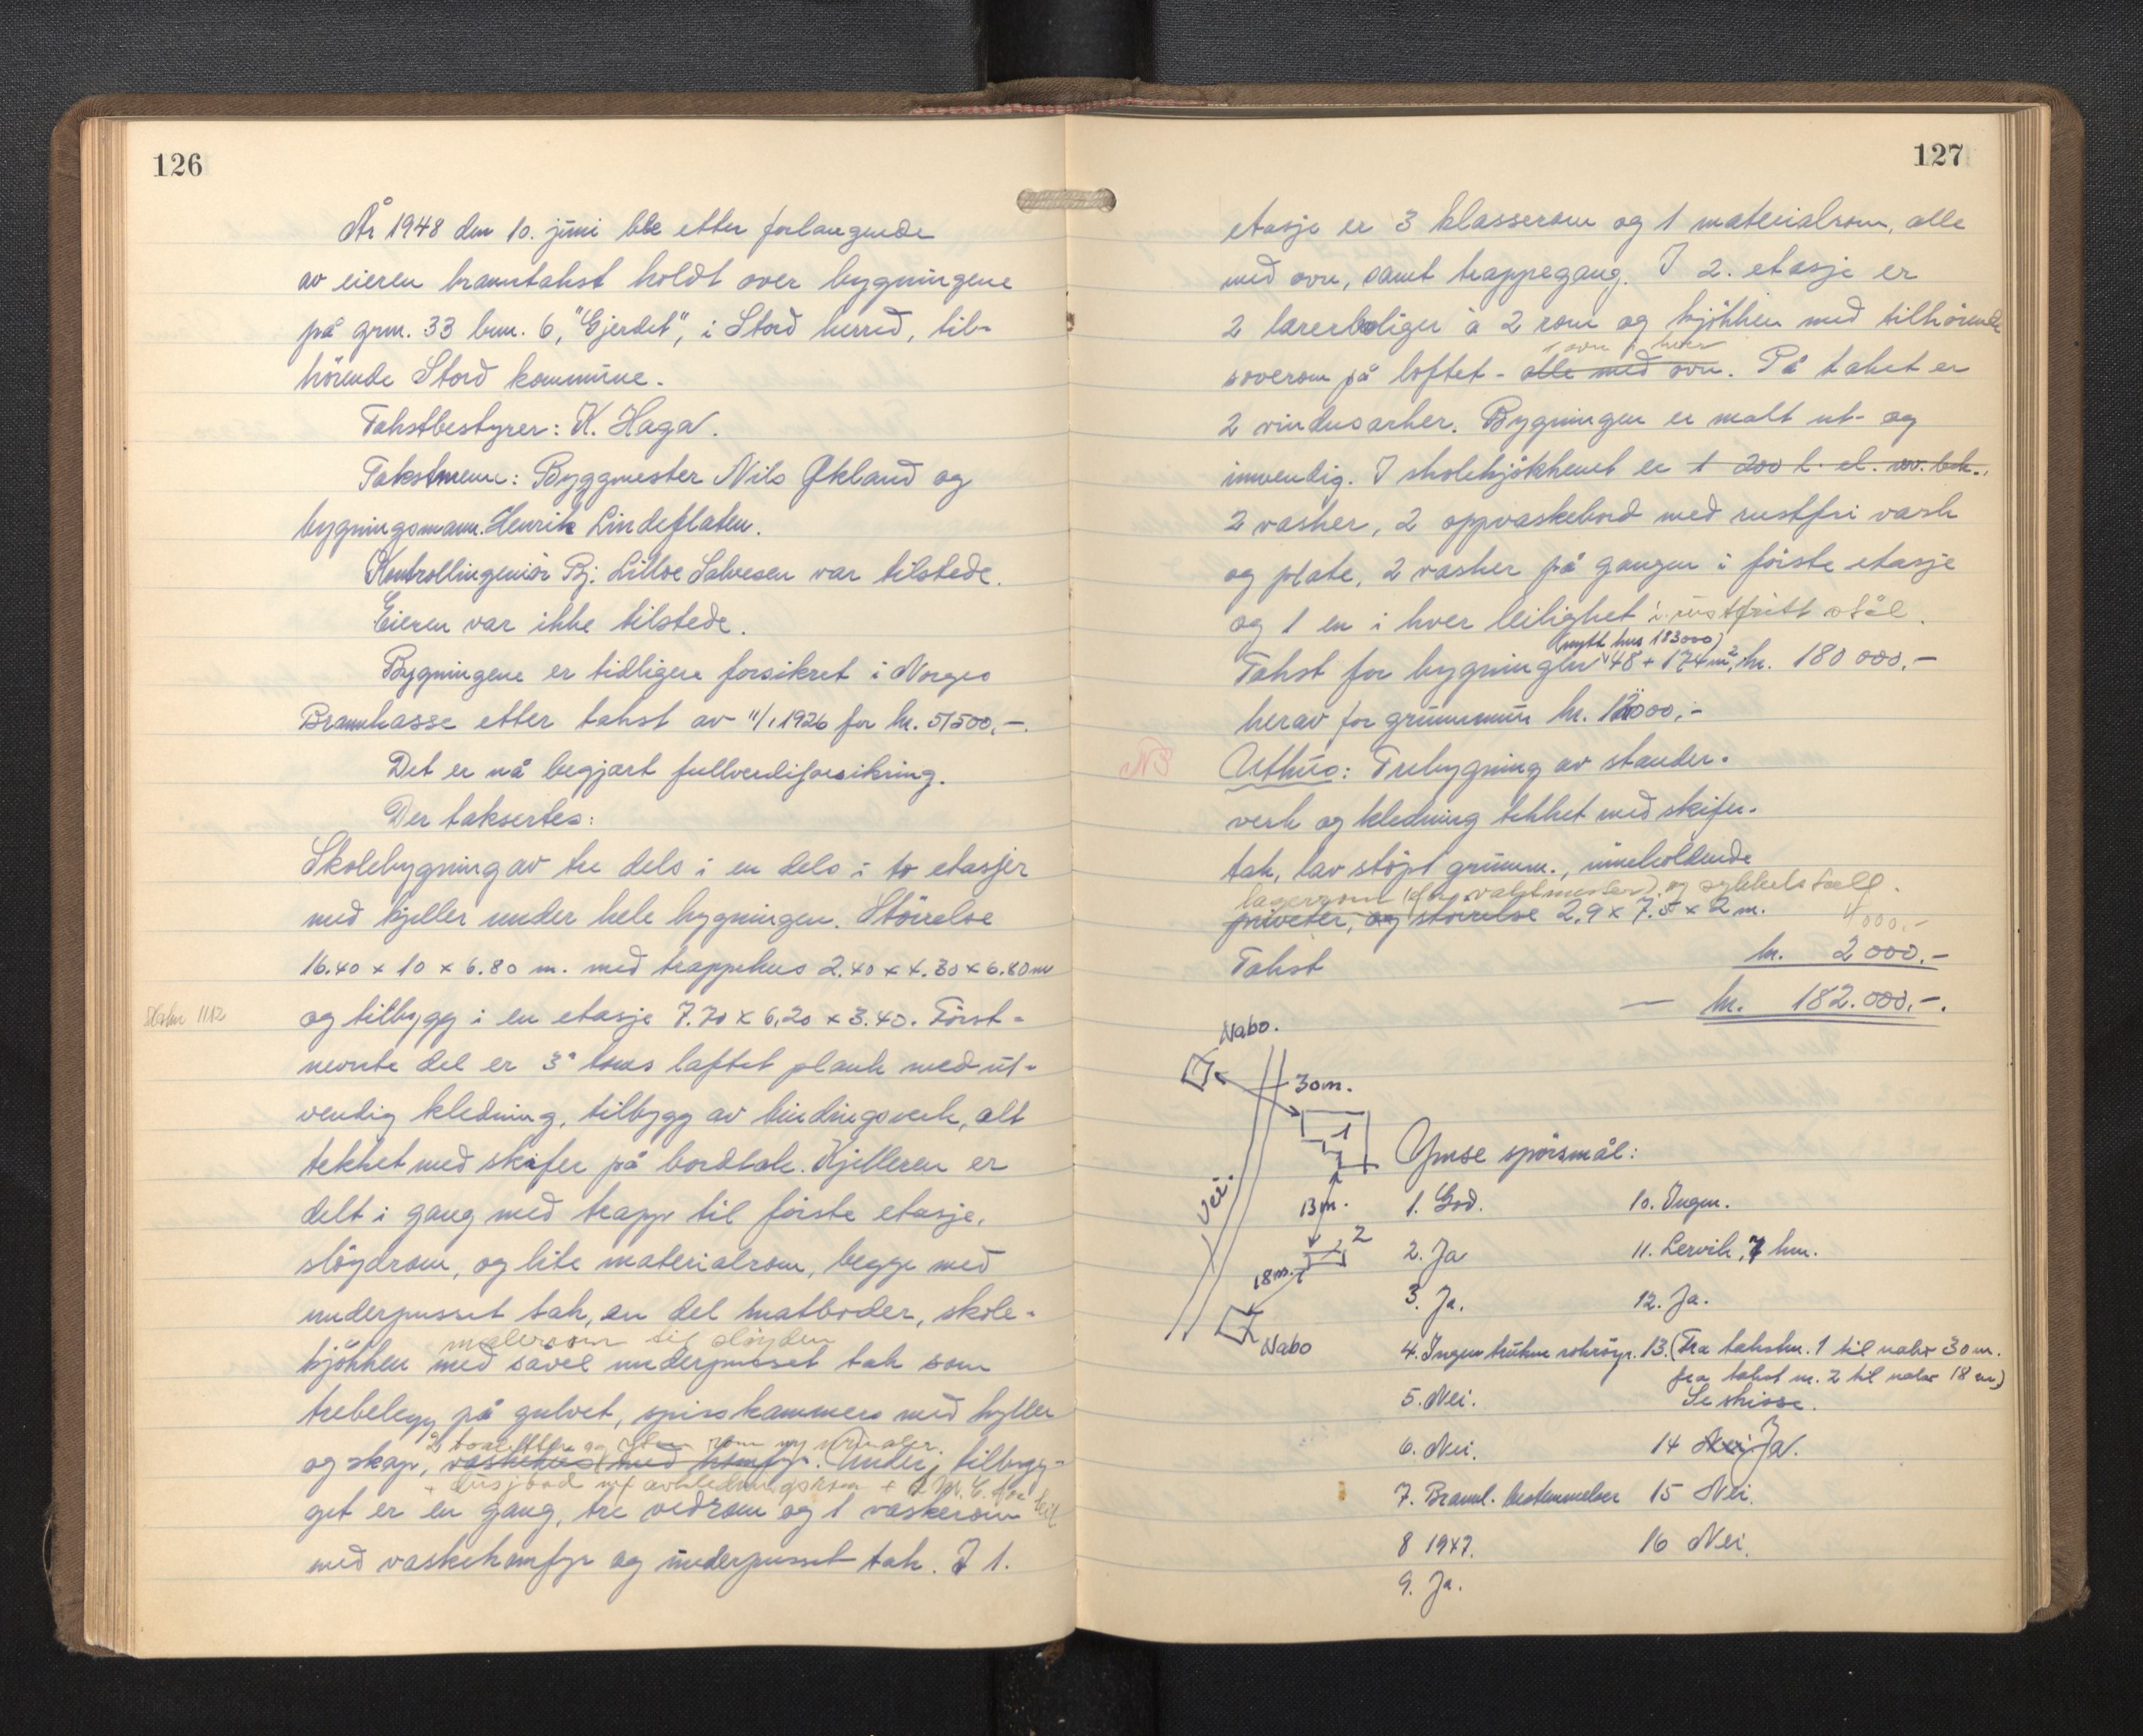 126
År 1948 den 10. juni ble etter forlangende
av eieren branntakst holdt over bygningene
på grm. 33 brm. 6, "Gjerdet", i Stord herred, til-
hörende Stord kommune.
Takstbestyrer: K. Haga.
Takstmenn: Byggmester Nils Økland og
bygningsmann Henrik Lindeflaten.
Kontrollingeniör Bj. Lilloe Salvesen var tilstede.
Eieren var ikke tilstede.
Bygningene er tidligere forsikret i Norges
Brannkasse etter takst av 11/1 1926 for kr. 51500,-.
Det er nå begjært fullverdiforsikring.
Der taksertes:
Skolebygning av tre dels i en dels i to etasjer
med kjeller under hele bygningen. Störrelse
16.40 x 10 x 6.80 m. med trappehus 2.40 x 4.30 x 6.80 m
og tilbygg i en etasje 7.70 x 6.20 x 3.40. Först-
nevnte del er 3" toms laftet plank med ut-
vendig kledning, tilbygg av bindingsverk, alt
tekket med skifer på bordtak. Kjelleren er
delt i gang med trapp til förste etasje,
slöydrom, og lite materialrom, begge med
underpusset tak, en del matboder, skole-
malerom til slöyden
kjökken med såvel underpusset tak som
trebelegg på gulvet, spiskammers med hyller
2 toaletter og rom urinaler.
og skap, vaskehus med komfyr. Under tilbyg-
+ dusjbad m/ avkledningsrom +
get er en gang, tre vedrom og 1 vaskerom
med vaskekomfyr og underpusset tak. I 1.
127
etasje er 3 klasserom og 1 materialrom, alle
med ovn, samt trappegang. I 2. etasje er
2 lærerboliger à 2 rom og kjökken med tilhörende
1 ovn i hver
soverom på loftet - alle med ovn. På taket er
2 vindusarker. Bygningen er malt ut- og
innvendig. I skolekjökkenet er 1 200 l. el. vv. beh.,
2 vasker, 2 oppvaskebord med rustfri vask
og plate, 2 vasker på gangen i förste etasje
og 1 en i hver leilighet i rustfritt stål.
(nytt hus 183000)
Takst for bygningen 48 + 174 m², kr. 180 000.-
herav for grunnmur kr. 12000,-
NB
Uthus: Trebygning av stender-
verk og kledning tekket med skifer-
tak, lav stöpt grunnm., inneholdende
lagerrom (f. vaktmester) og sykkelstall.
privater, og störrelse 2,9 x 7.5 x 2 m.
4000,-
Takst kr. 2 000.-
— kr. 182.000,-.
Nabo.
30 m.
1
Vei.
13 m.
2
18 m.
Nabo
Ymse spörsmål:
1. God.
2. Ja
3. Ja.
4. Ingen
5. Nei.
6. Nei.
7. Brannl. bestemmelser
8 1947.
9. Ja.
10. Ingen.
11. Lervik, 7 km.
12. Ja.
13. (Fra takstnr. 1 til nabo 30 m.
fra takst nr. 2 til nabo 18 m)
Se skisse.
14 Nei Ja.
15 Nei.
16 Nei.